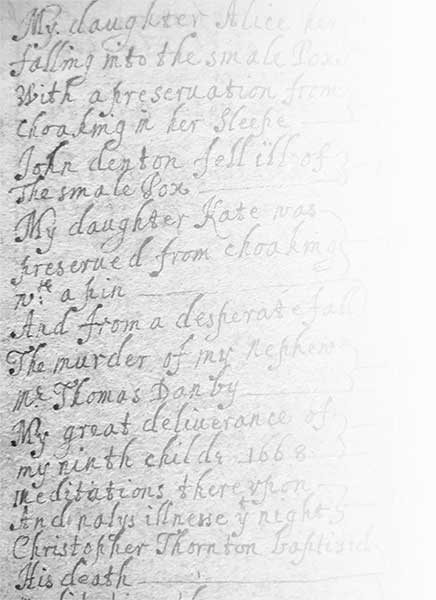 My daughter Alice her
falling into the smale Pox
With a preseruation from
choaking in her Sleepe
John denton fell ill of
The smale Pox
My daughter Kate was
preserued from choaking
wth a pin
And from a desperate fall
The murder of my Nephew
mr Thomas Danby
My great deliverance of
my ninth childe 1668
meditations there vpon
And nalys illnesse yt night
Christopher Thornton baptised
His death